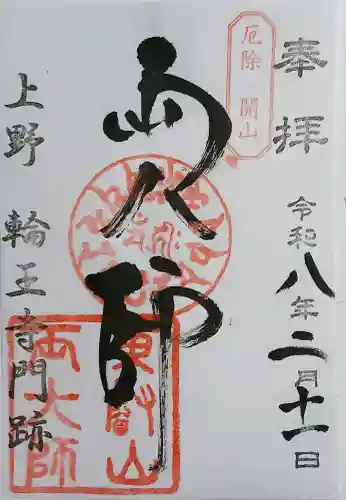 奉拝
令和八年二月十一日
厄除 開山
両大師
上野 輪王寺門跡
東叡山
両大師